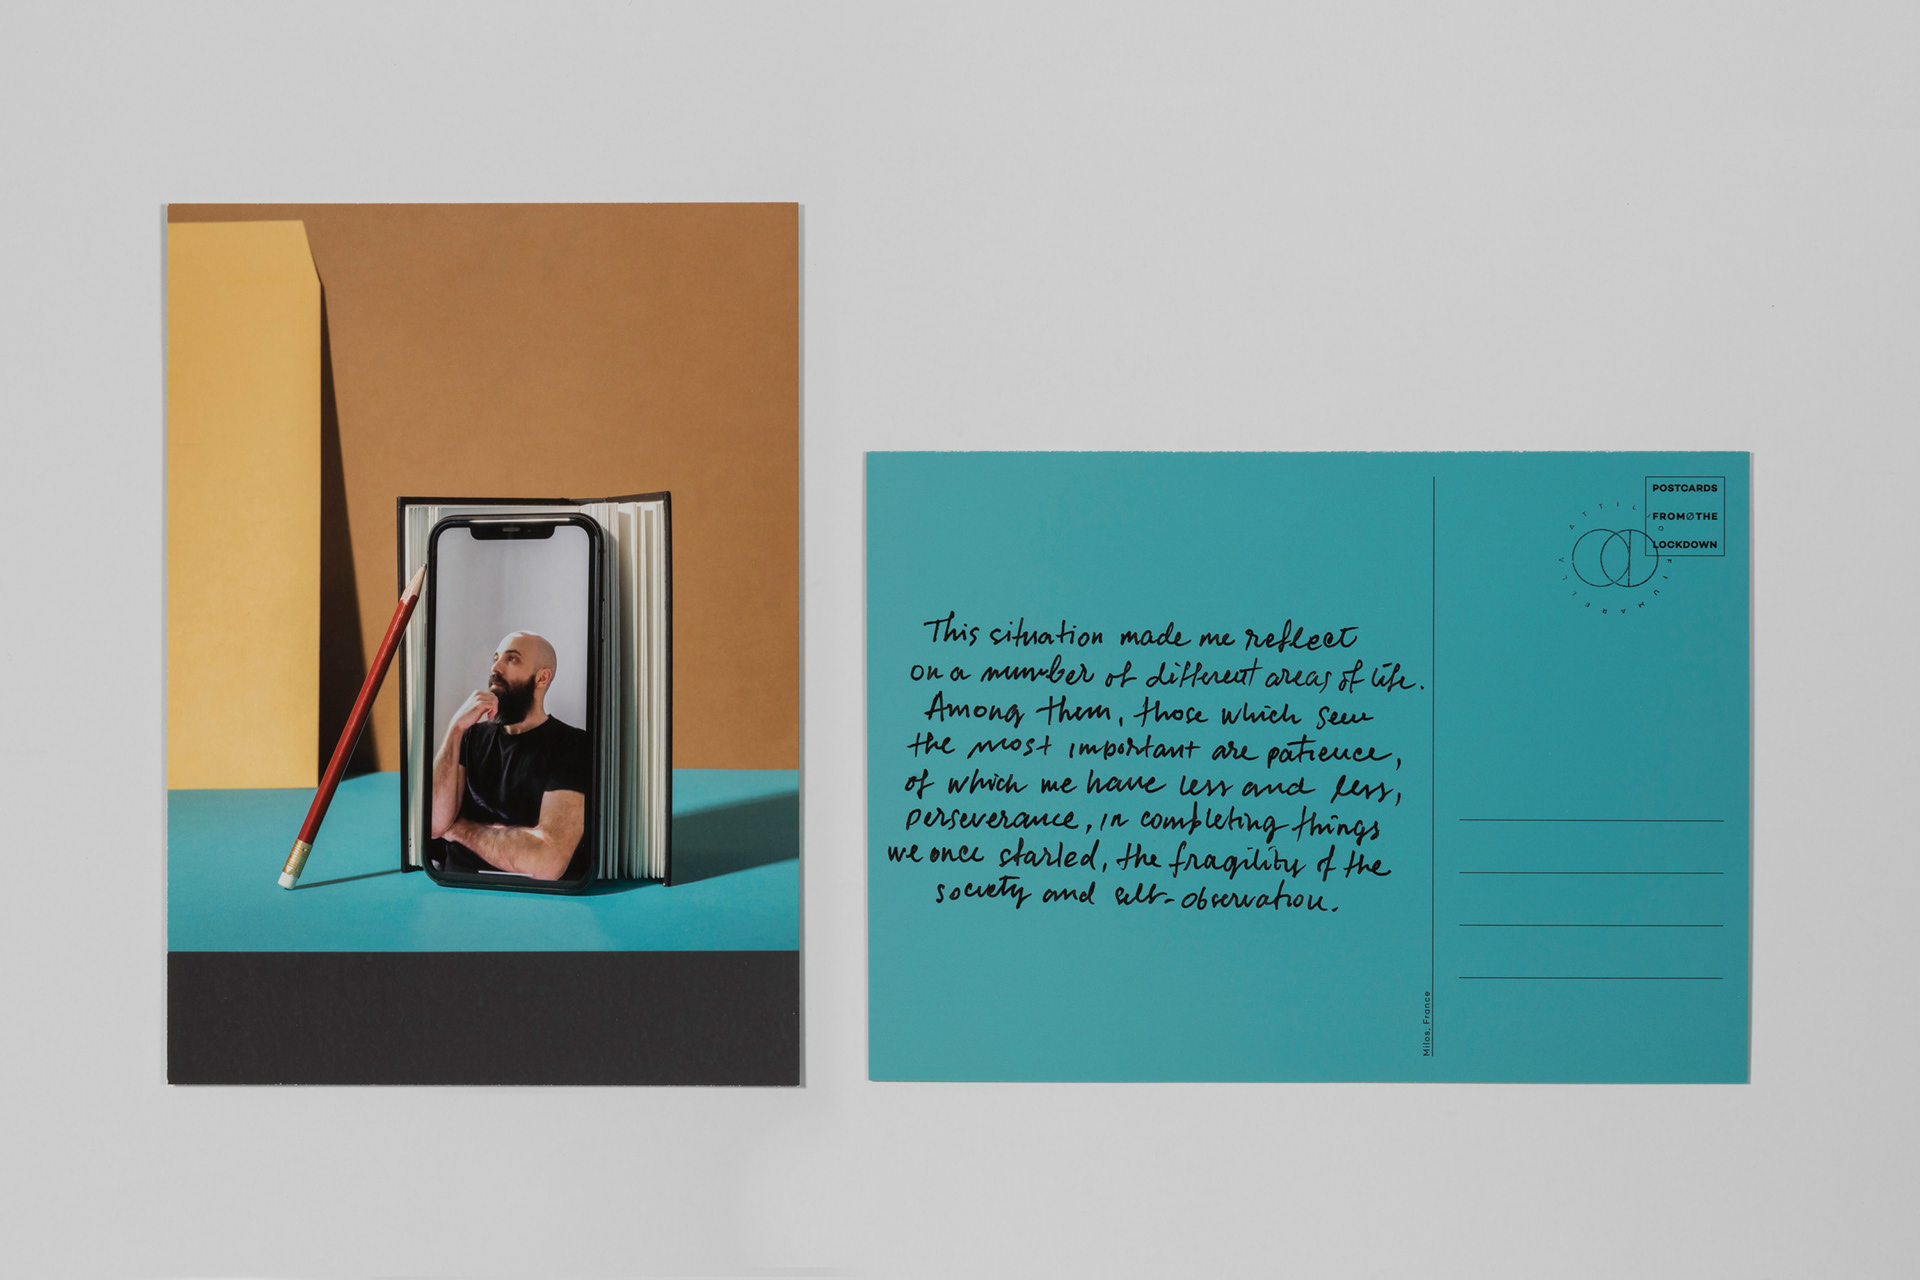 This situation made me reflect
on a number of different areas of life.
Among them, those which seem
the most important are patience,
of which we have less and less,
perseverance, in completing things
we once started, the fragility of the
society and self-observation.
Milos, France
POSTCARDS
FROMØTHE
LOCKDOWN
ATTILIO FIUMARELLA